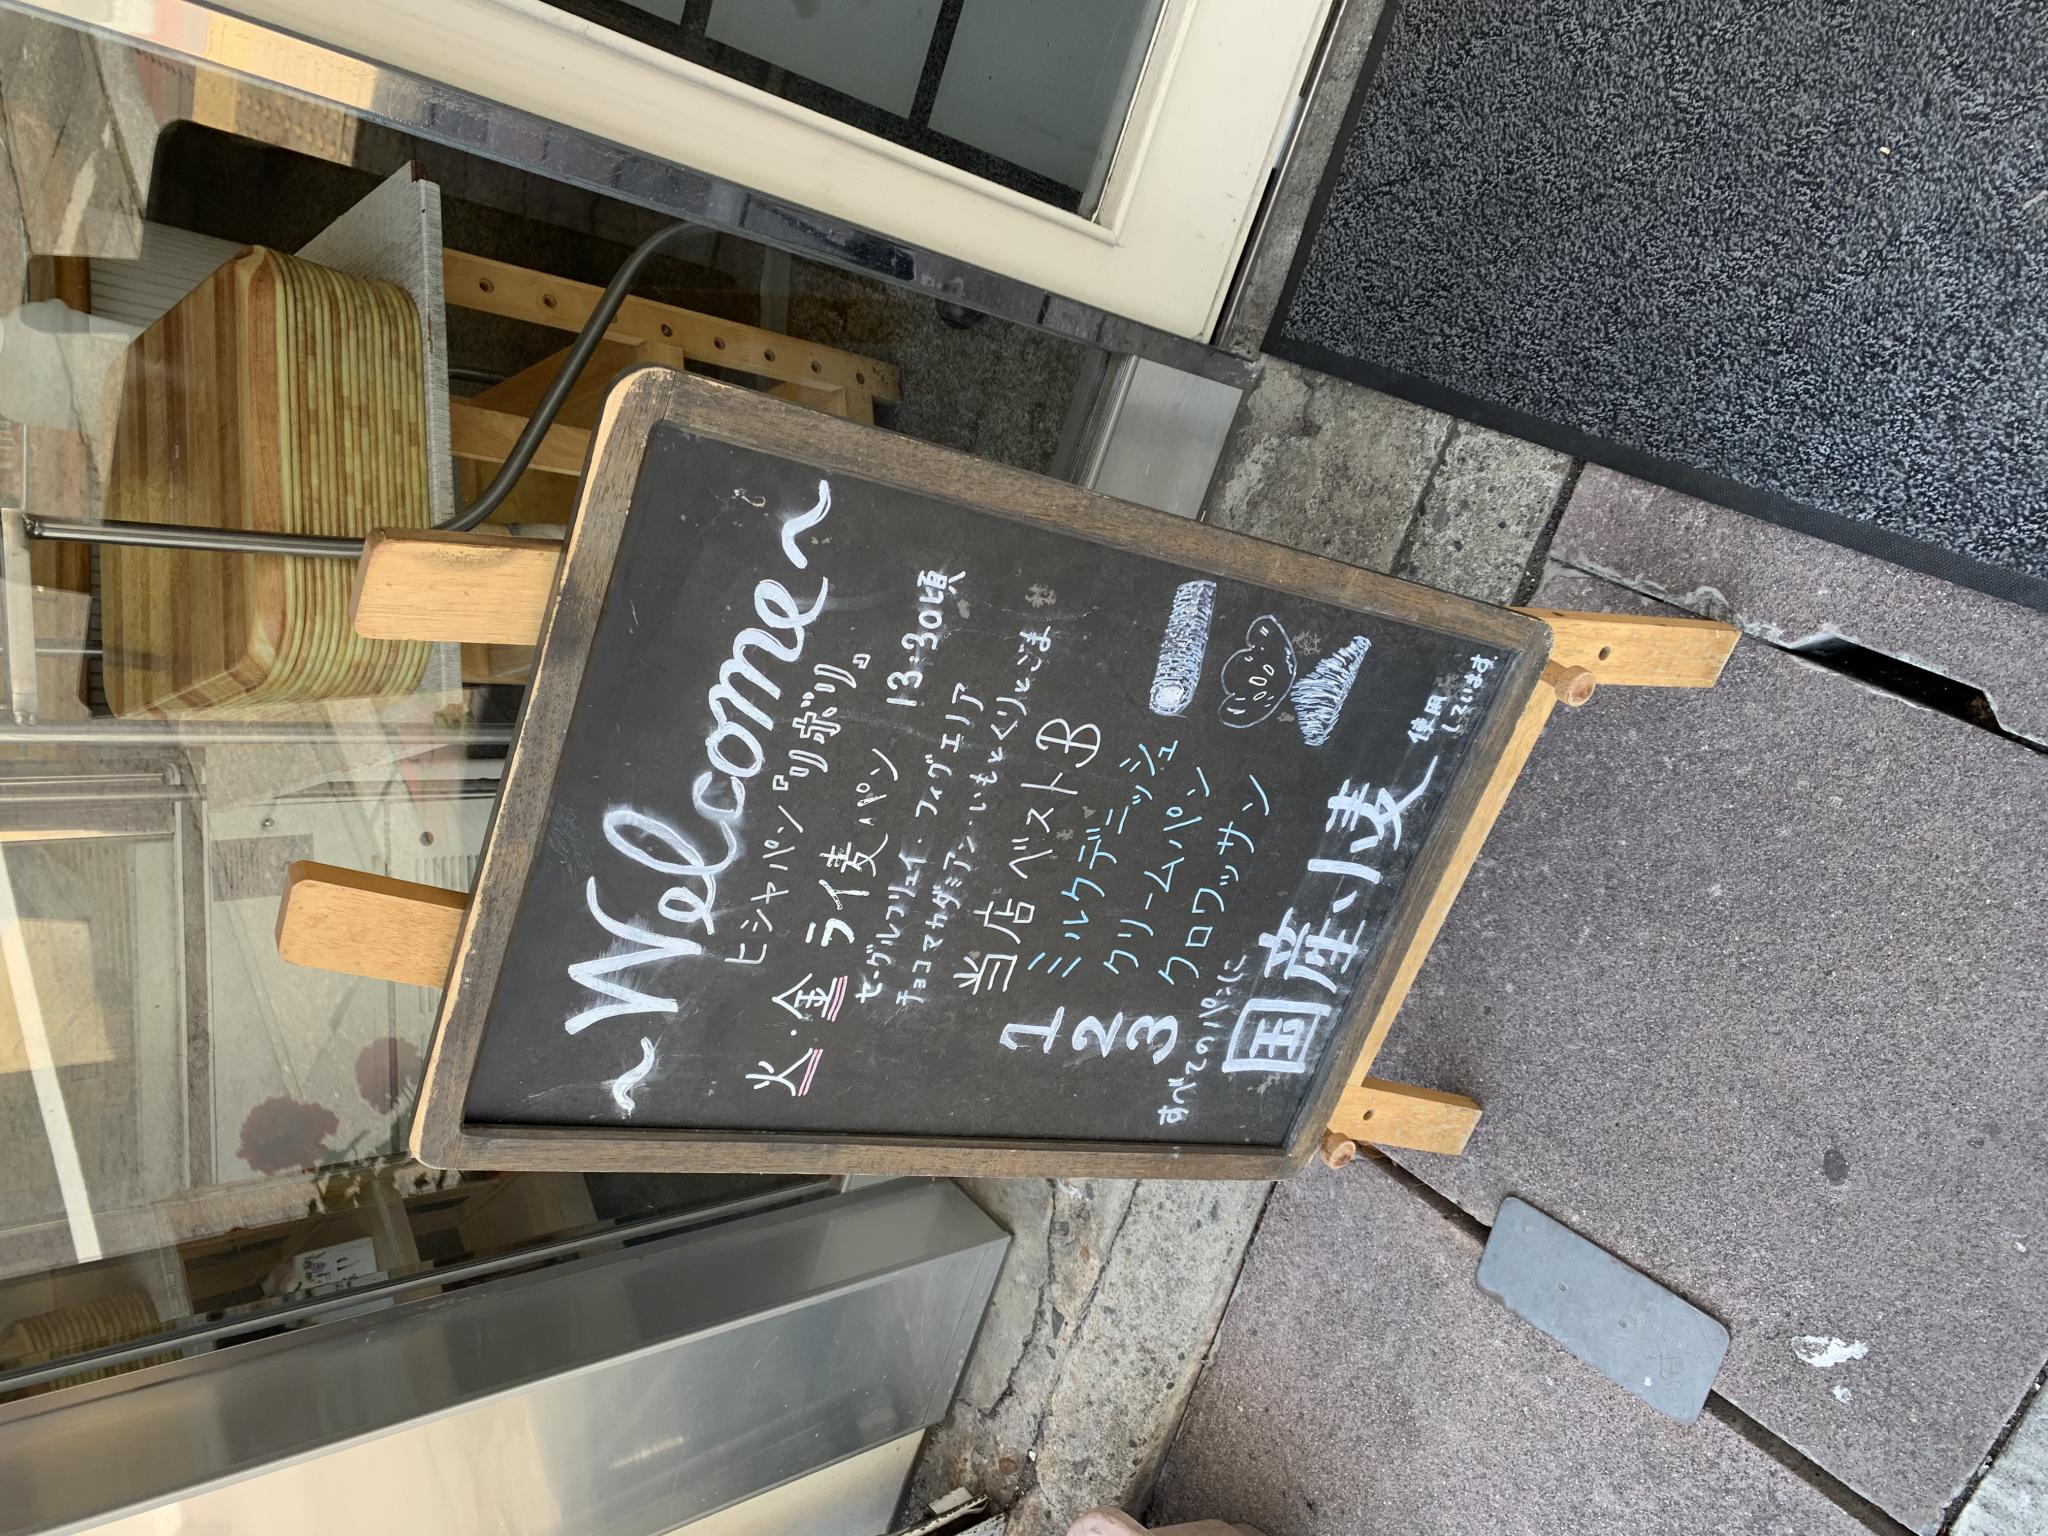 ~Welcome~
ヒシャパン『リボリ』
火・金 ライ麦パン 13:30頃
セーグルフリュイ・フィグエリア
チョコマカダミアン・いもとくりとごま
当店 ベスト3
1 ミルクデニッシュ
2 クリームパン
3 クロワッサン
すべてのパンに
国産小麦 使用
しています